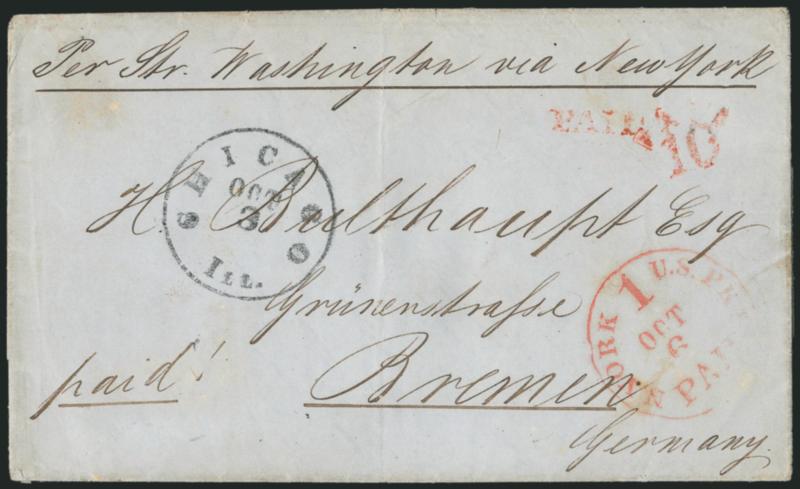 Per Str. Washington via New York
PAID 10
CHICAGO
OCT
3
ILL.
H Bulthaupt Esq
Grünenstrasse
U.S. PKT
1
OCT
6
PAID
N YORK
paid!
Bremen.
Germany.